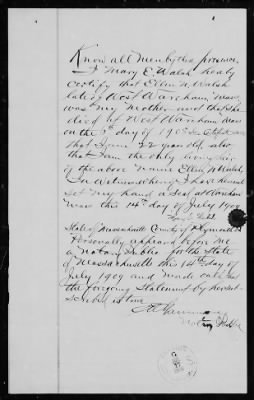 Know all men by this presence
I Mary E. Walsh hereby
certify that Ellen N. Walsh
late of West Wareham Mass
was my Mother and that she
died at West Wareham Mass
on the day of 190
that I am 22 year old, also
that I am the only
of the above name Ellen N Walsh,
In witness whereof I have hereunto
set my hand & seal at
Mass this 14th day of July 1909
State of Massachusetts County of Plymouth
Personally appeared before me
a Notary Public for the State
of Massachusetts this 14th day of
July 1909 and made oath that
the foregoing Statement by her
scribed is true
Notary Public